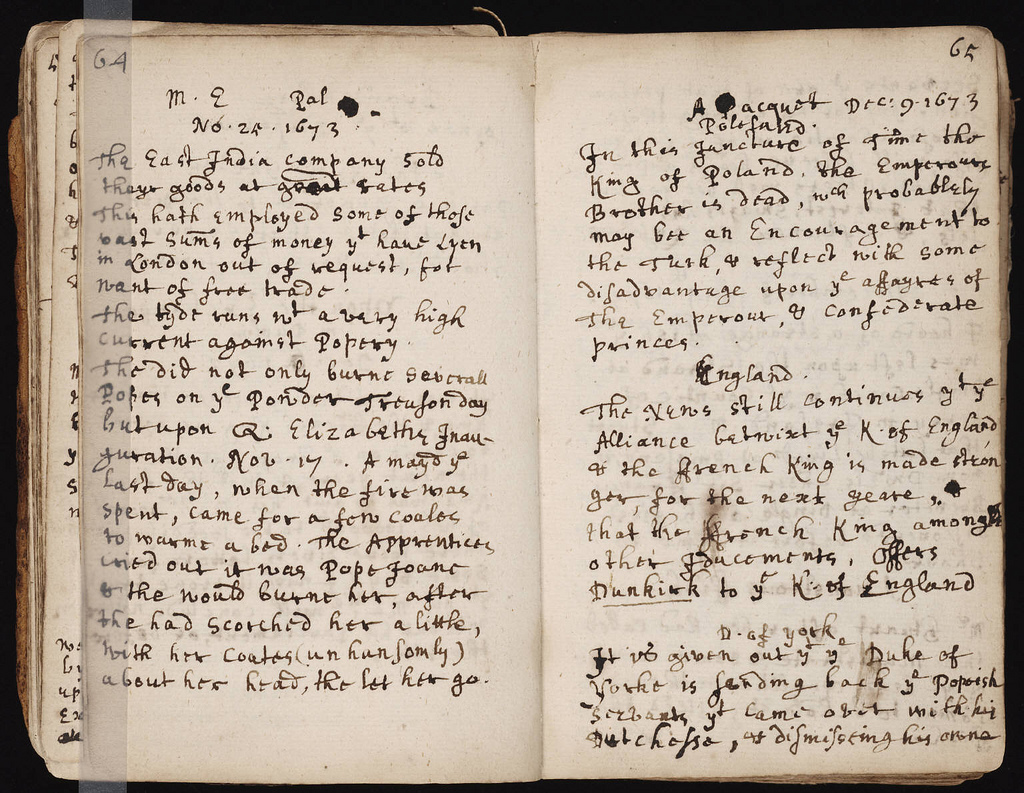 64
M. E Pal
No. 25. 1673.
The East India company sold
theyr goods at great rates
This hath employed some of those
vast sums of money yt have lyen
in London out of request, for
want of free trade.
The tyde runs wt a very high
current against Popery.
The did not only burne severall
Popes on ye Powder Treason day
but upon Q: Elizabeths Inau-
guration. Nov. 17. A mayd ye
last day, when the fire was
spent, came for a few coales
to warme a bed. The Apprentices
cried out it was Pope Joane
& the would burne her, after
the had scorched her a little,
with her coates (unhansomly)
about her head, the let her go.
65
A Pacquet Dec: 9. 1673
Poleland.
In this juncture of Time the
King of Poland, the Emperours
Brother is dead, wch probablely
may bee an Encouragement to
the Turk, & reflect with some
disadvantage upon ye affayres of
The Emperour, & Confederate
princes.
England.
The News still continues yt ye
Alliance betwixt ye K. of England,
& the ffrench King is made stron
ger, for the next yeare, &
that the ffrench King amongst
other Iducements, Offers
Dunkirk to ye K. of England
D. of york
It is given out yt ye Duke of
Yorke is sending back ye Popish
Servants yt came over with his
Dutchesse, & dismisseing his owne